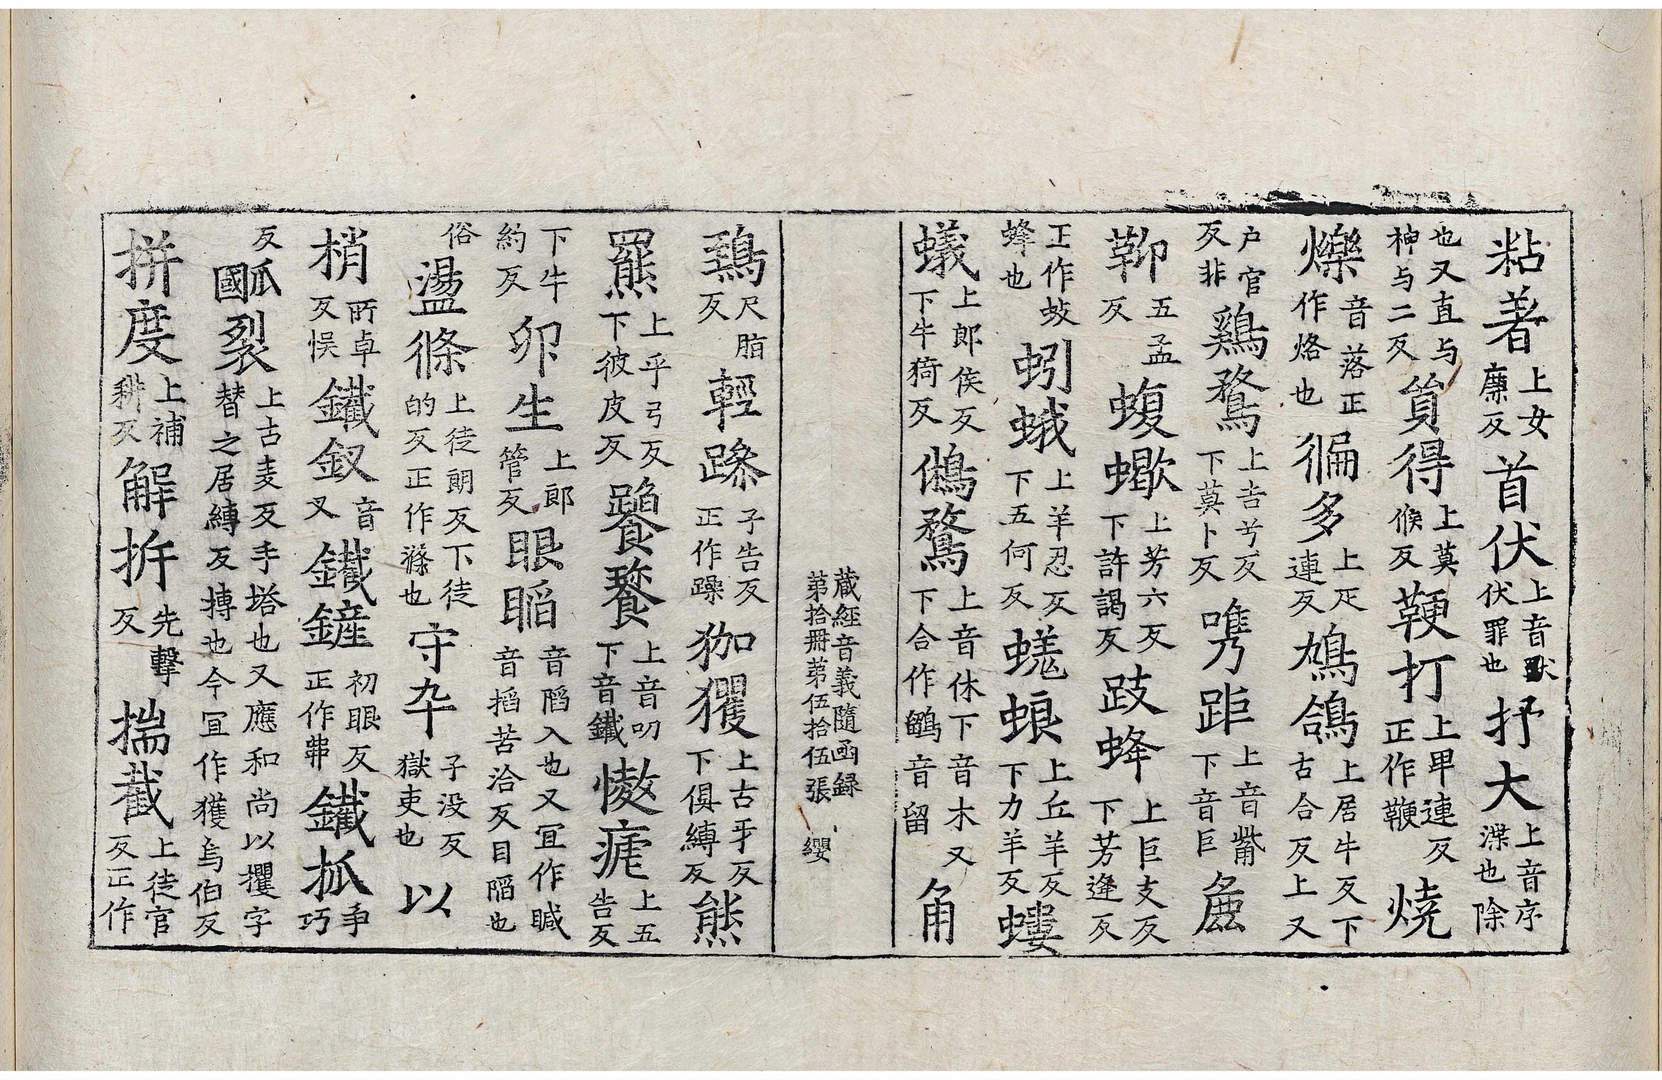 粘著上女廉反首伏上音獸伏罪也抒大上音序渫也除
也又直与神与二反貿得上莫候反鞕打上卑連反正作鞭燒
爍音落正作烙也徧多上疋連反鳩鴿上居牛反下古合反上又
户官反非鷄鶩上吉兮反下莫卜反嘴距上音觜下音巨麁
鞕五孟反蝮蠍上芳六反下許謁反蚑蜂上巨支反下芳逢反
正作蚑蜂也蚓蛾上羊忍反下五何反蜣蜋上丘羊反下力羊反螻
蟻上郎侯反下牛猗反鵂鶩上音休下音木又下合作鶹音留角
藏經音義隨函録
第拾冊第伍拾伍張 纓
鵄尺脂反輕躁子告反正作躁狐玃上古乎反下俱縛反熊
羆上乎弓反下彼皮反饕餮上音叨下音鐵慠瘧上五告反
下牛約反卵生上郎管反眼䁍音䧟入也又冝作䁍音搯苦洽反目䧟也
俗盪滌上徒朗反下徒的反正作滌也守卒子没反獄吏也以
梢所卓反悮鐵釵音叉鐵鏟初眼反正作弗鐵抓爭巧
反㼌國裂上古麦反手㧺也又應和尚以攫字替之居縛反搏也今冝作攫烏伯反
拼度上補耕反解㧸先擊反揣截上徒官反正作